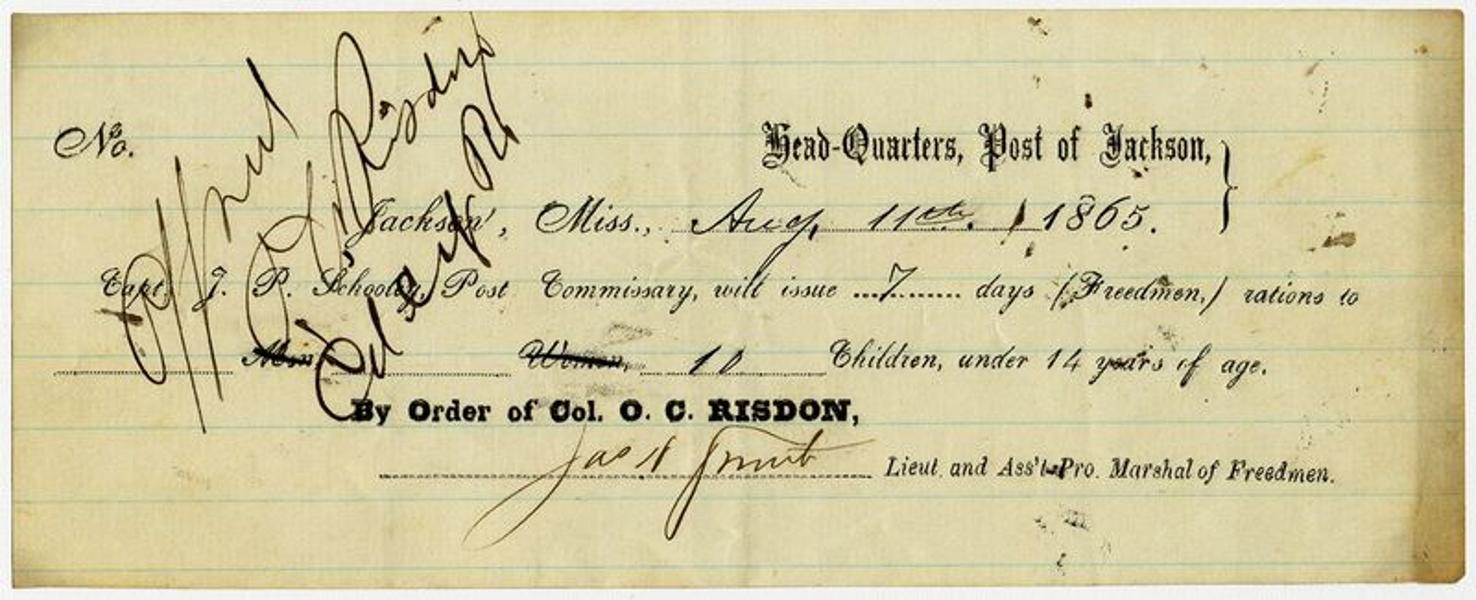 No.
Head-Quarters, Post of Jackson,
Jackson, Miss., Aug, 11th. 1865.
Capt. J. P. Schooley, Post Commissary, will issue 7 days (Freedmen,) rations to
Men Women, 10 Children, under 14 years of age.
By Order of Col. O. C. RISDON,
Jas N Lieut. and Ass't Pro. Marshal of Freedmen.
O C Risdon
Col